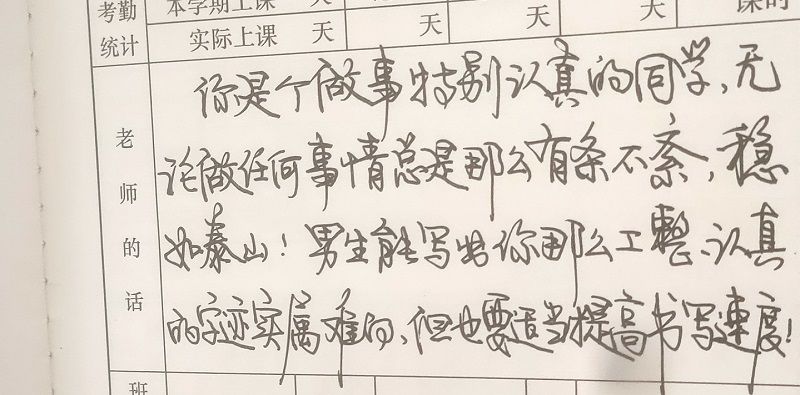 考勤 本学期上课 天 天 天 天 课时
统计 实际上课 天 天 天 天
老师的话
你是个做事特别认真的同学,无
论做任何事情总是那么有条不紊,稳
如泰山!男生能写出你那么工整、认真
的字迹实属难的,但也要适当提高书写速度!
班